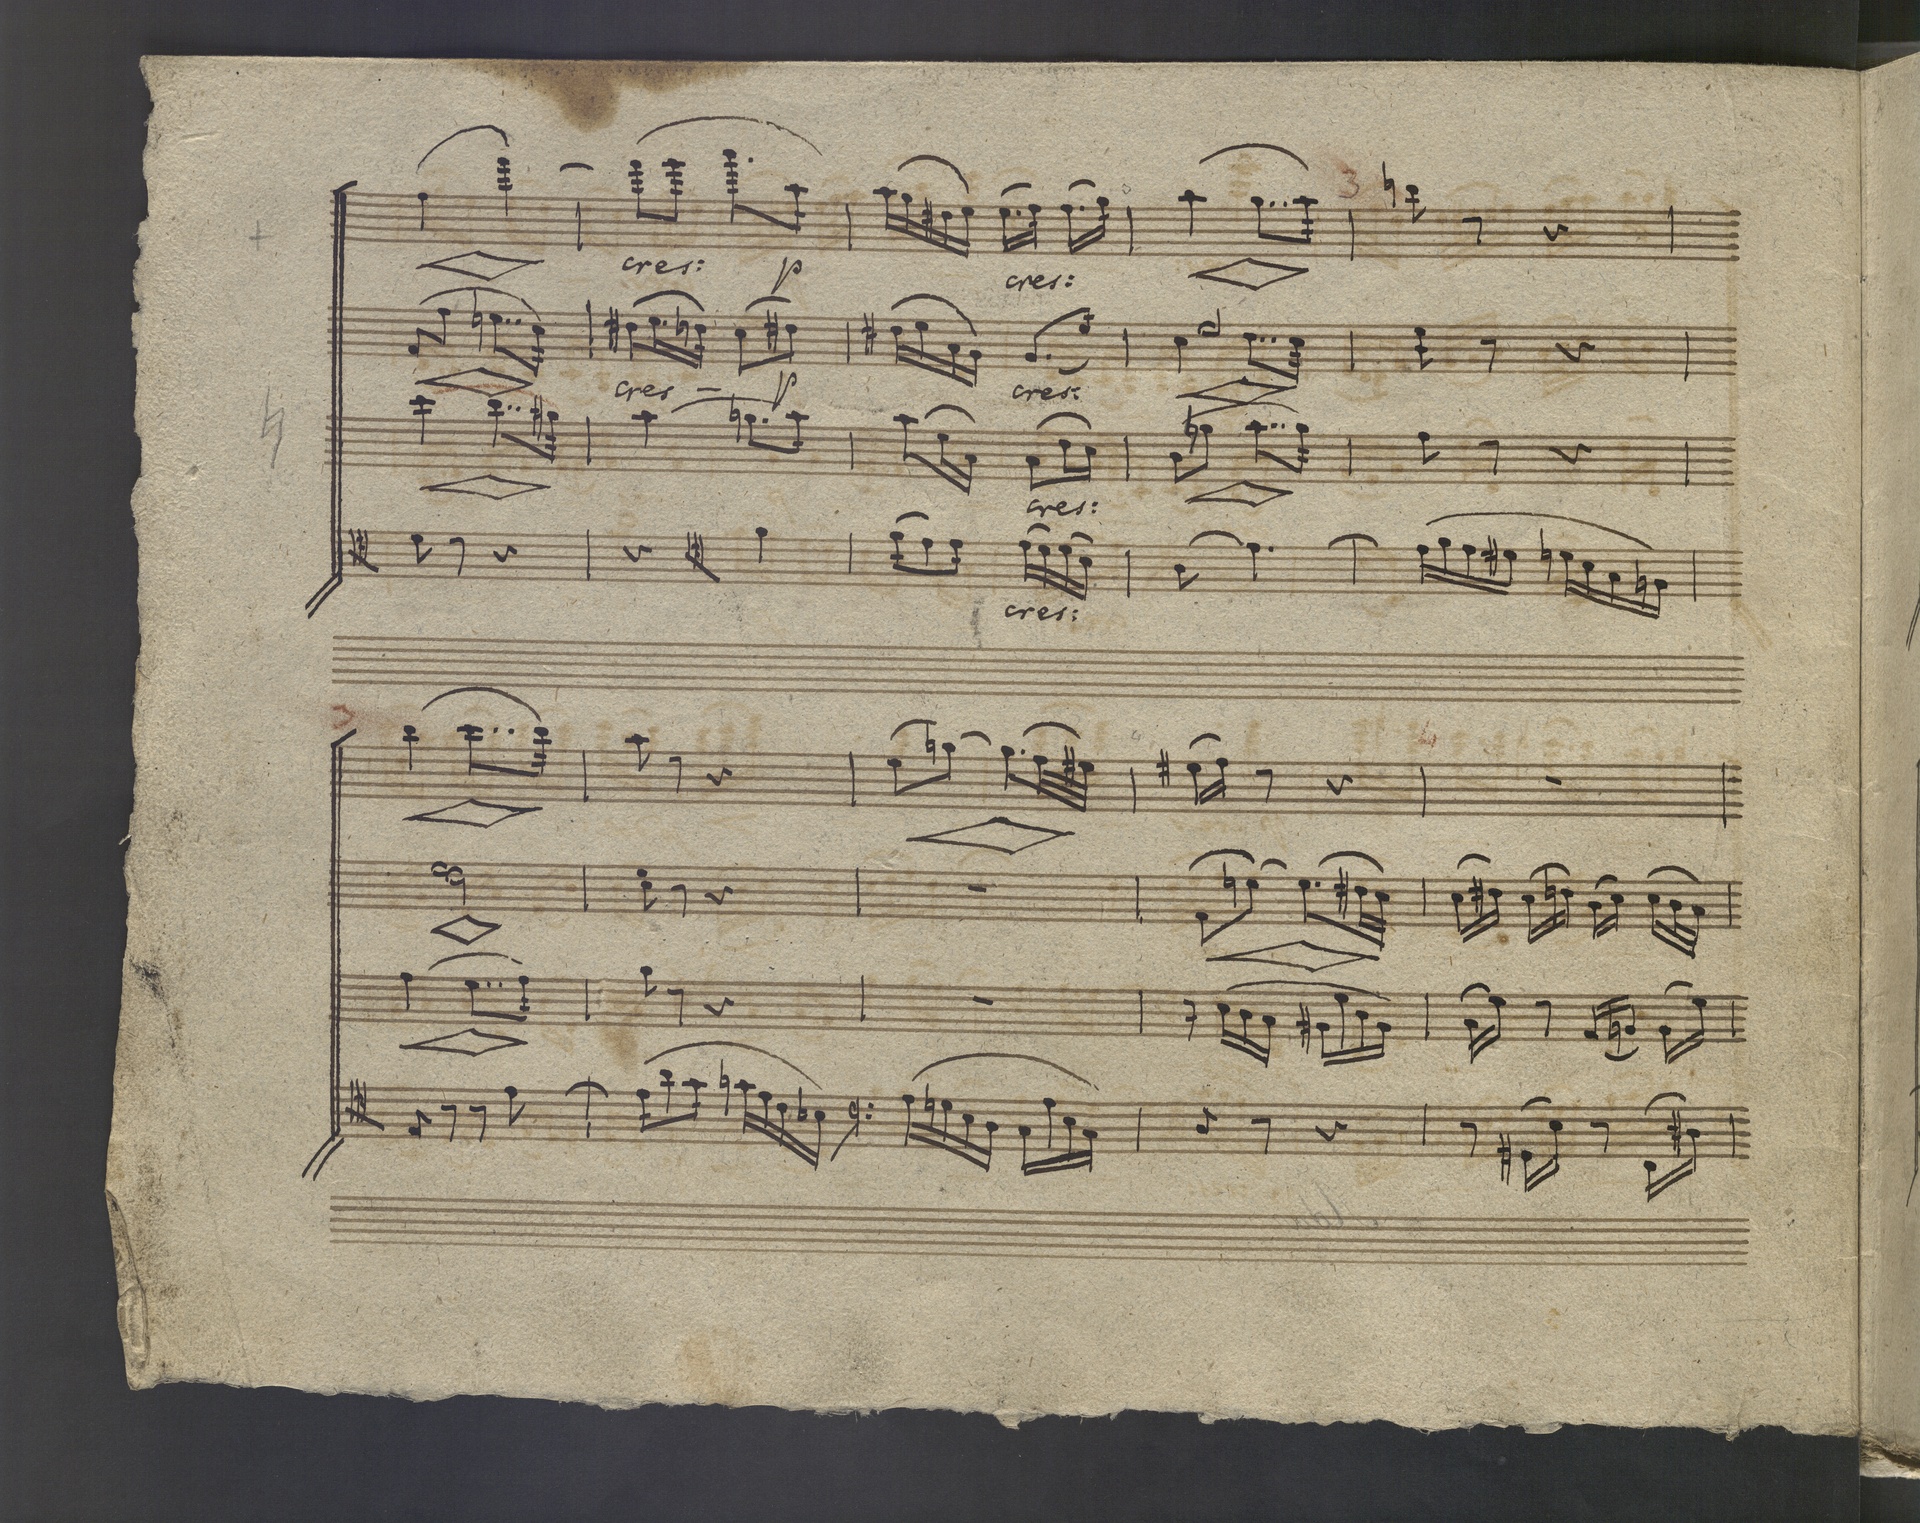 3
cres: p cres:
cres – p cres:
cres:
cres:
3 4